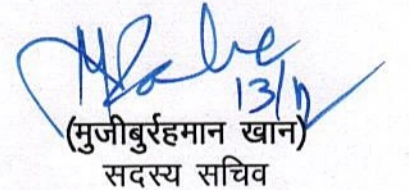 13/11
(मुजीबुर्रहमान खान)
सदस्य सचिव